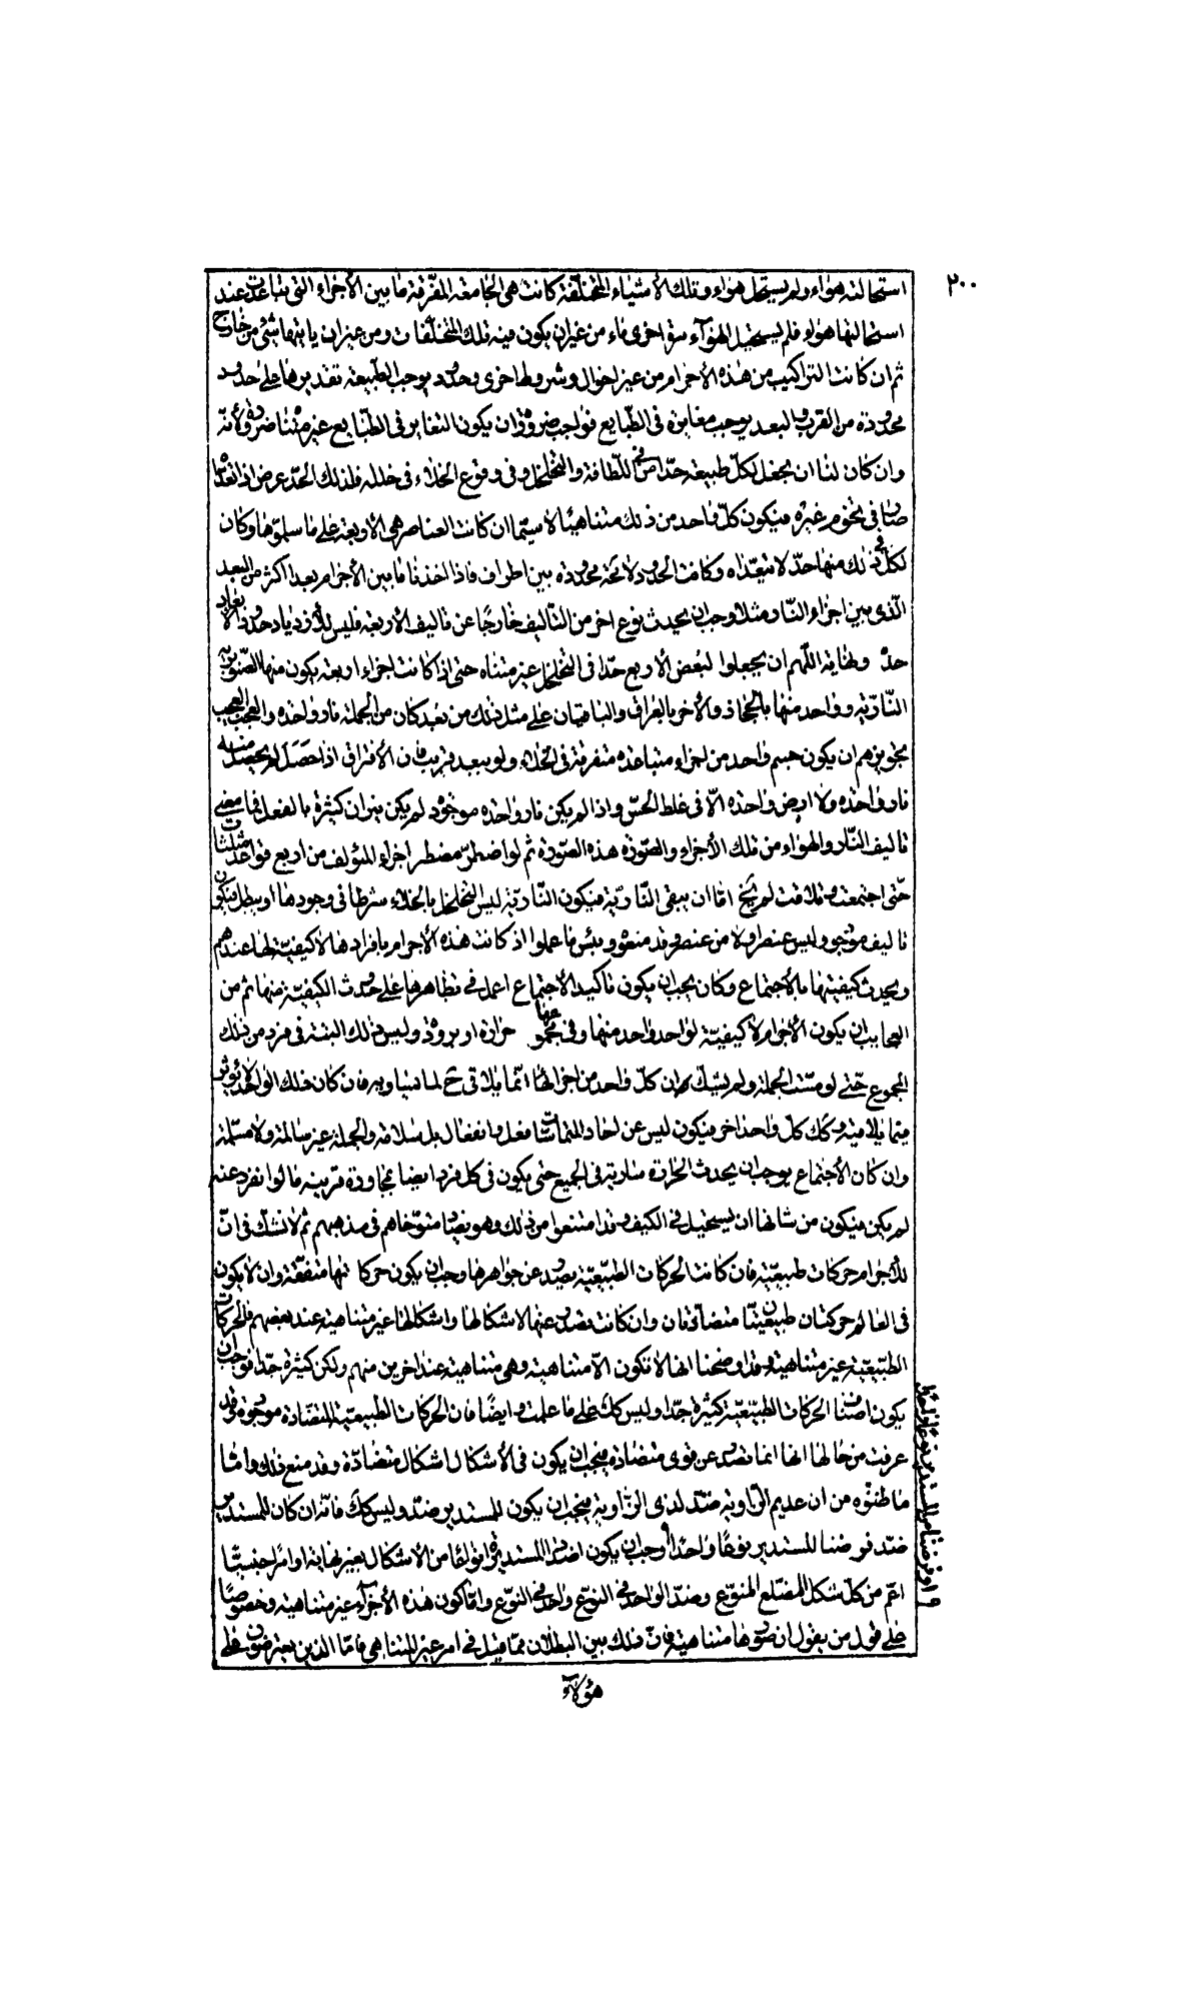 ٢٠٠
استحالته هواء ولم يستحل هواء وتلك الأشياء المتخلفة كانت هى الجامعة المفرقة ما بين الأجزاء التى تباعدت عند
استحالتها هواء فلم يستحيل الهواء مرة اخرى ماء من غير ان يكون فيه تلك المتخلفات ومن غير ان ياتيها شئ من خارج
ثم ان كانت التراكيب من هذه الأجرام من غير احوال وشروط اخرى وحدود يوجب الطبيعة تقديرها على حدود
محدودة من القرب والبعد يوجب مغايرة فى الطبايع فواجب ضرورة ان يكون التغاير فى الطبايع غير متناه ضرورة ولأنه
وان كان لنا ان نجعل لكل طبيعة حدا من اللطافة والتخلخل وفى وقوع الخلاء فى خلله فلذلك الحد عرض اذا تعداه
صار فى تخوم غيره فيكون كل واحد من ذلك متناهيا لا سيما ان كانت العناصر هى الأربعة على ما سلموها وكان
لكل فى ذلك منها حد لا تتعداه وكانت الحدود لا محة محدودة بين اطراف فاذا اخذنا ما بين الأجرام بعدا اكثر من البعد
الذى بين اجزاء النار مثلا وجب ان يحدث نوع اخر من التاليف خارجا عن تاليف الأربعة فليس للأزدياد حدود الأبعاد
حد ونهاية اللهم ان يجعلوا لبعض الأربع حدا فى التخلخل غير متناه حتى اذا كانت اجزاء اربعة يكون منها الصنوبرية
النارية وواحد منها بالحجاز والأخر بالعراق والباقيان على مثل ذلك من بعد كان من الجملة نار واحدة والعجب العجيب
تجويزهم ان يكون جسم واحد من اجزاء متباعدة متفرقة فى الخلاء ولو ببعد قريب فان الأفتراق اذا حصل لم يحصل منه
نار واحدة ولا ارض واحدة الا فى غلط الحس واذا لم يكن نار واحدة موجود لم يكن نيران كثيرة بالفعل فما معنى
تاليف النار والهواء من تلك الأجزاء والصورة هذه الصورة ثم لو اضطر مضطر اجزاء المؤلف من اربع قواعد مثلثات
حتى اجتمعت وتلاقت لم يخ اما ان يبقى النارية فيكون النارية ليس التخلخل بالخلاء شرطا فى وجودها او يبطل فيكون
تاليف موجود وليس عنصرا ولا من عنصر وقد منعوه وبئس ما عملوا اذ كانت هذه الأجرام بافرادها لا كيفية لها عندهم
ويحدث كيفيتها بالأجتماع وكان يجب ان يكون تاكيد الاجتماع اعمل فى تظاهرها على حدوث الكيفية منها ثم من
العجايب ان يكون الأجرام لا كيفية لواحد واحد منها وفى مجموعها حرارة او برودة وليس ذلك البتة فى فرد من ذلك
المجموع حتى لو مست الجملة ولم يشك ان كل واحد من اجزائها انما يلاقى ح لما يساويه فان كان ذلك الواحد لا يؤثر
فيما يلاقيه وكك كل واحد اخر فيكون ليس عن احاد المتماسات فعل وانفعال بل سلامة والجملة غير سالمة ولا مسلمة
وان كان الأجتماع يوجب ان يحدث الحرارة سارية فى الجميع حتى يكون فى كل فرد ايضا بمجاورة قرينه ما لو انفرد عنه
لم يكن فيكون من شانها ان يستحيل فى الكيف وقد امتنعوا من ذلك وهو نصب متوخاهم فى مذهبهم ثم لا نشك فى ان
للأجرام حركات طبيعية فان كانت الحركات الطبيعية يصدر عن جواهرها وجب ان يكون حركاتها متفقة وان لا يكون
فى العالم حركتان طبيعيتان متضادتان وان كانت تصدر عنها لاشكالها واشكالها غير متناهية عند بعضهم فالحركات
الطبيعية غير متناهية وقد اوضحنا انها لا تكون الا متناهية وهى متناهية عند اخرين منهم ولكن كثيرة جدا فوجب ان
يكون اصناف الحركات الطبيعية كثيرة جدا وليس كك على ما علمت وايضا فان الحركات الطبيعية المتضادة موجودة وقد
عرفت من حالها انها انما تصدر عن قوى متضادة فيجب ان يكون فى الأشكال اشكال متضادة وقد منع ذلك واما
ما ظنوه من ان عديم الزاوية ضد لذى الزاوية فيجب ان يكون للمستدير ضد وليس كك فانه ان كان للمستدير
ضد فرضنا للمستدير نوعا واحدا وجب ان يكون اضداد المستديرة انواعا من الأشكال بغير نهاية او امرا جنسيا
اعم من كل شكل المضلع المنوع وضد الواحد فى النوع واحد فى النوع واما كون هذه الأجزاء غير متناهية وخصوصا
على قول من يقول ان صورها متناهية فان ذلك بين البطلان مما قيل فى امر غير المتناهى فاما الذين يعترضون على
هؤلاء